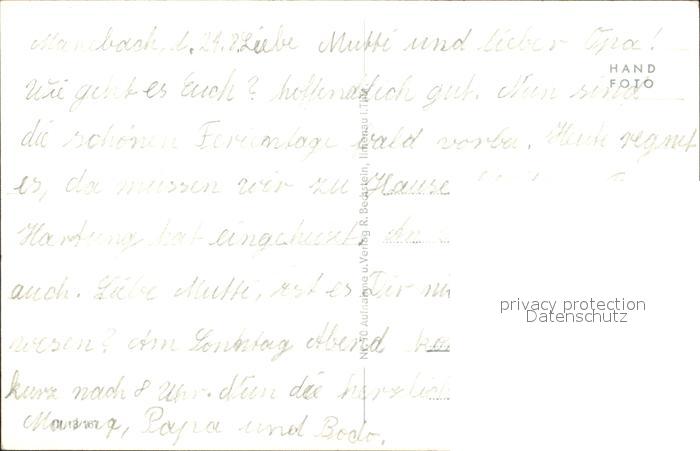 Manebach, d. 29.8 Liebe Mutti und lieber Opa!
Wie geht es Euch? hoffendlich gut. Nun sind
die schönen Ferientage bald vorba. Heute regnet
es, da müssen wir zu Hause
Hartung hat eingeheizt.
auch. Liebe Mutti, ist es Dir
wesen? Am Sonntag Abend
kurz nach 8 Uhr. Nun die herzlich
Papa und Bodo.
HAND
FOTO
Aufnahme u. Verlag R. Bechstein, Ilmenau i. Th.
privacy protection
Datenschutz